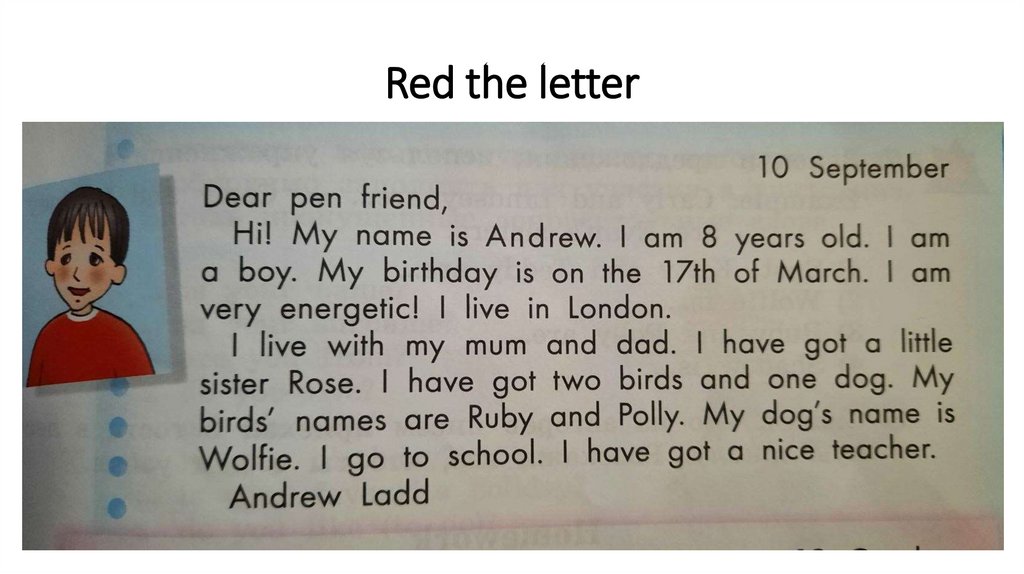 Red the letter
10 September
Dear pen friend,
Hi! My name is Andrew. I am 8 years old. I am
a boy. My birthday is on the 17th of March. I am
very energetic! I live in London.
I live with my mum and dad. I have got a little
sister Rose. I have got two birds and one dog. My
birds’ names are Ruby and Polly. My dog’s name is
Wolfie. I go to school. I have got a nice teacher.
Andrew Ladd